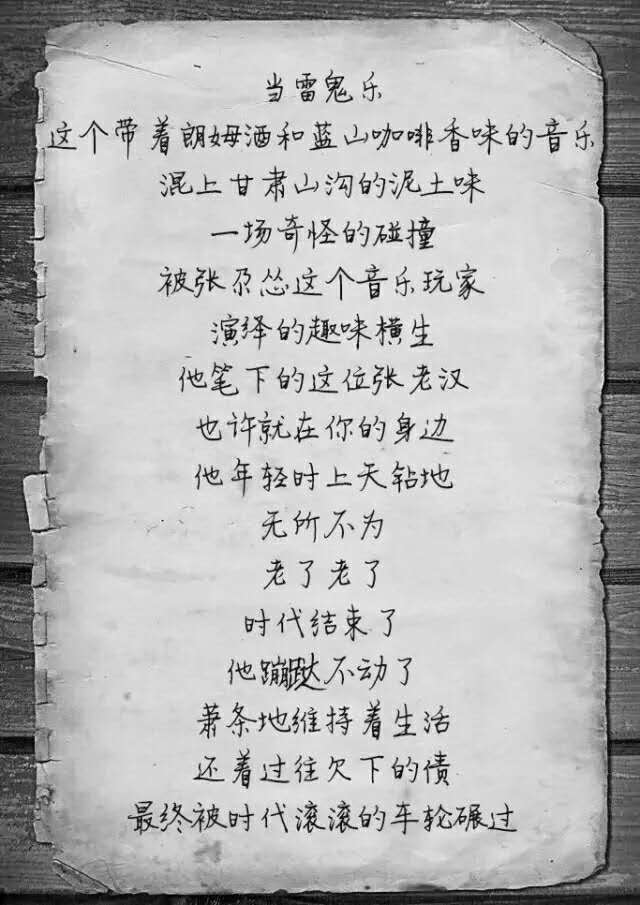 当雷鬼乐
这个带着朗姆酒和蓝山咖啡香味的音乐
混上甘肃山沟的泥土味
一场奇怪的碰撞
被张尕怂这个音乐玩家
演绎的趣味横生
他笔下的这位张老汉
也许就在你的身边
他年轻时上天钻地
无所不为
老了老了
时代结束了
他蹦跶不动了
萧条地维持着生活
还着过往欠下的债
最终被时代滚滚的车轮碾过